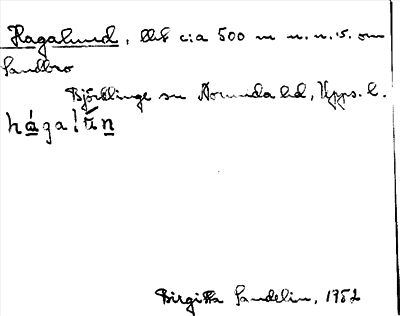 Hagalund, llt c:a 500 m n.n.v. om
Sandbro
Björklinge sn Norunda hd, Upps. l.
hágalún
Birgitta Sundelin, 1952